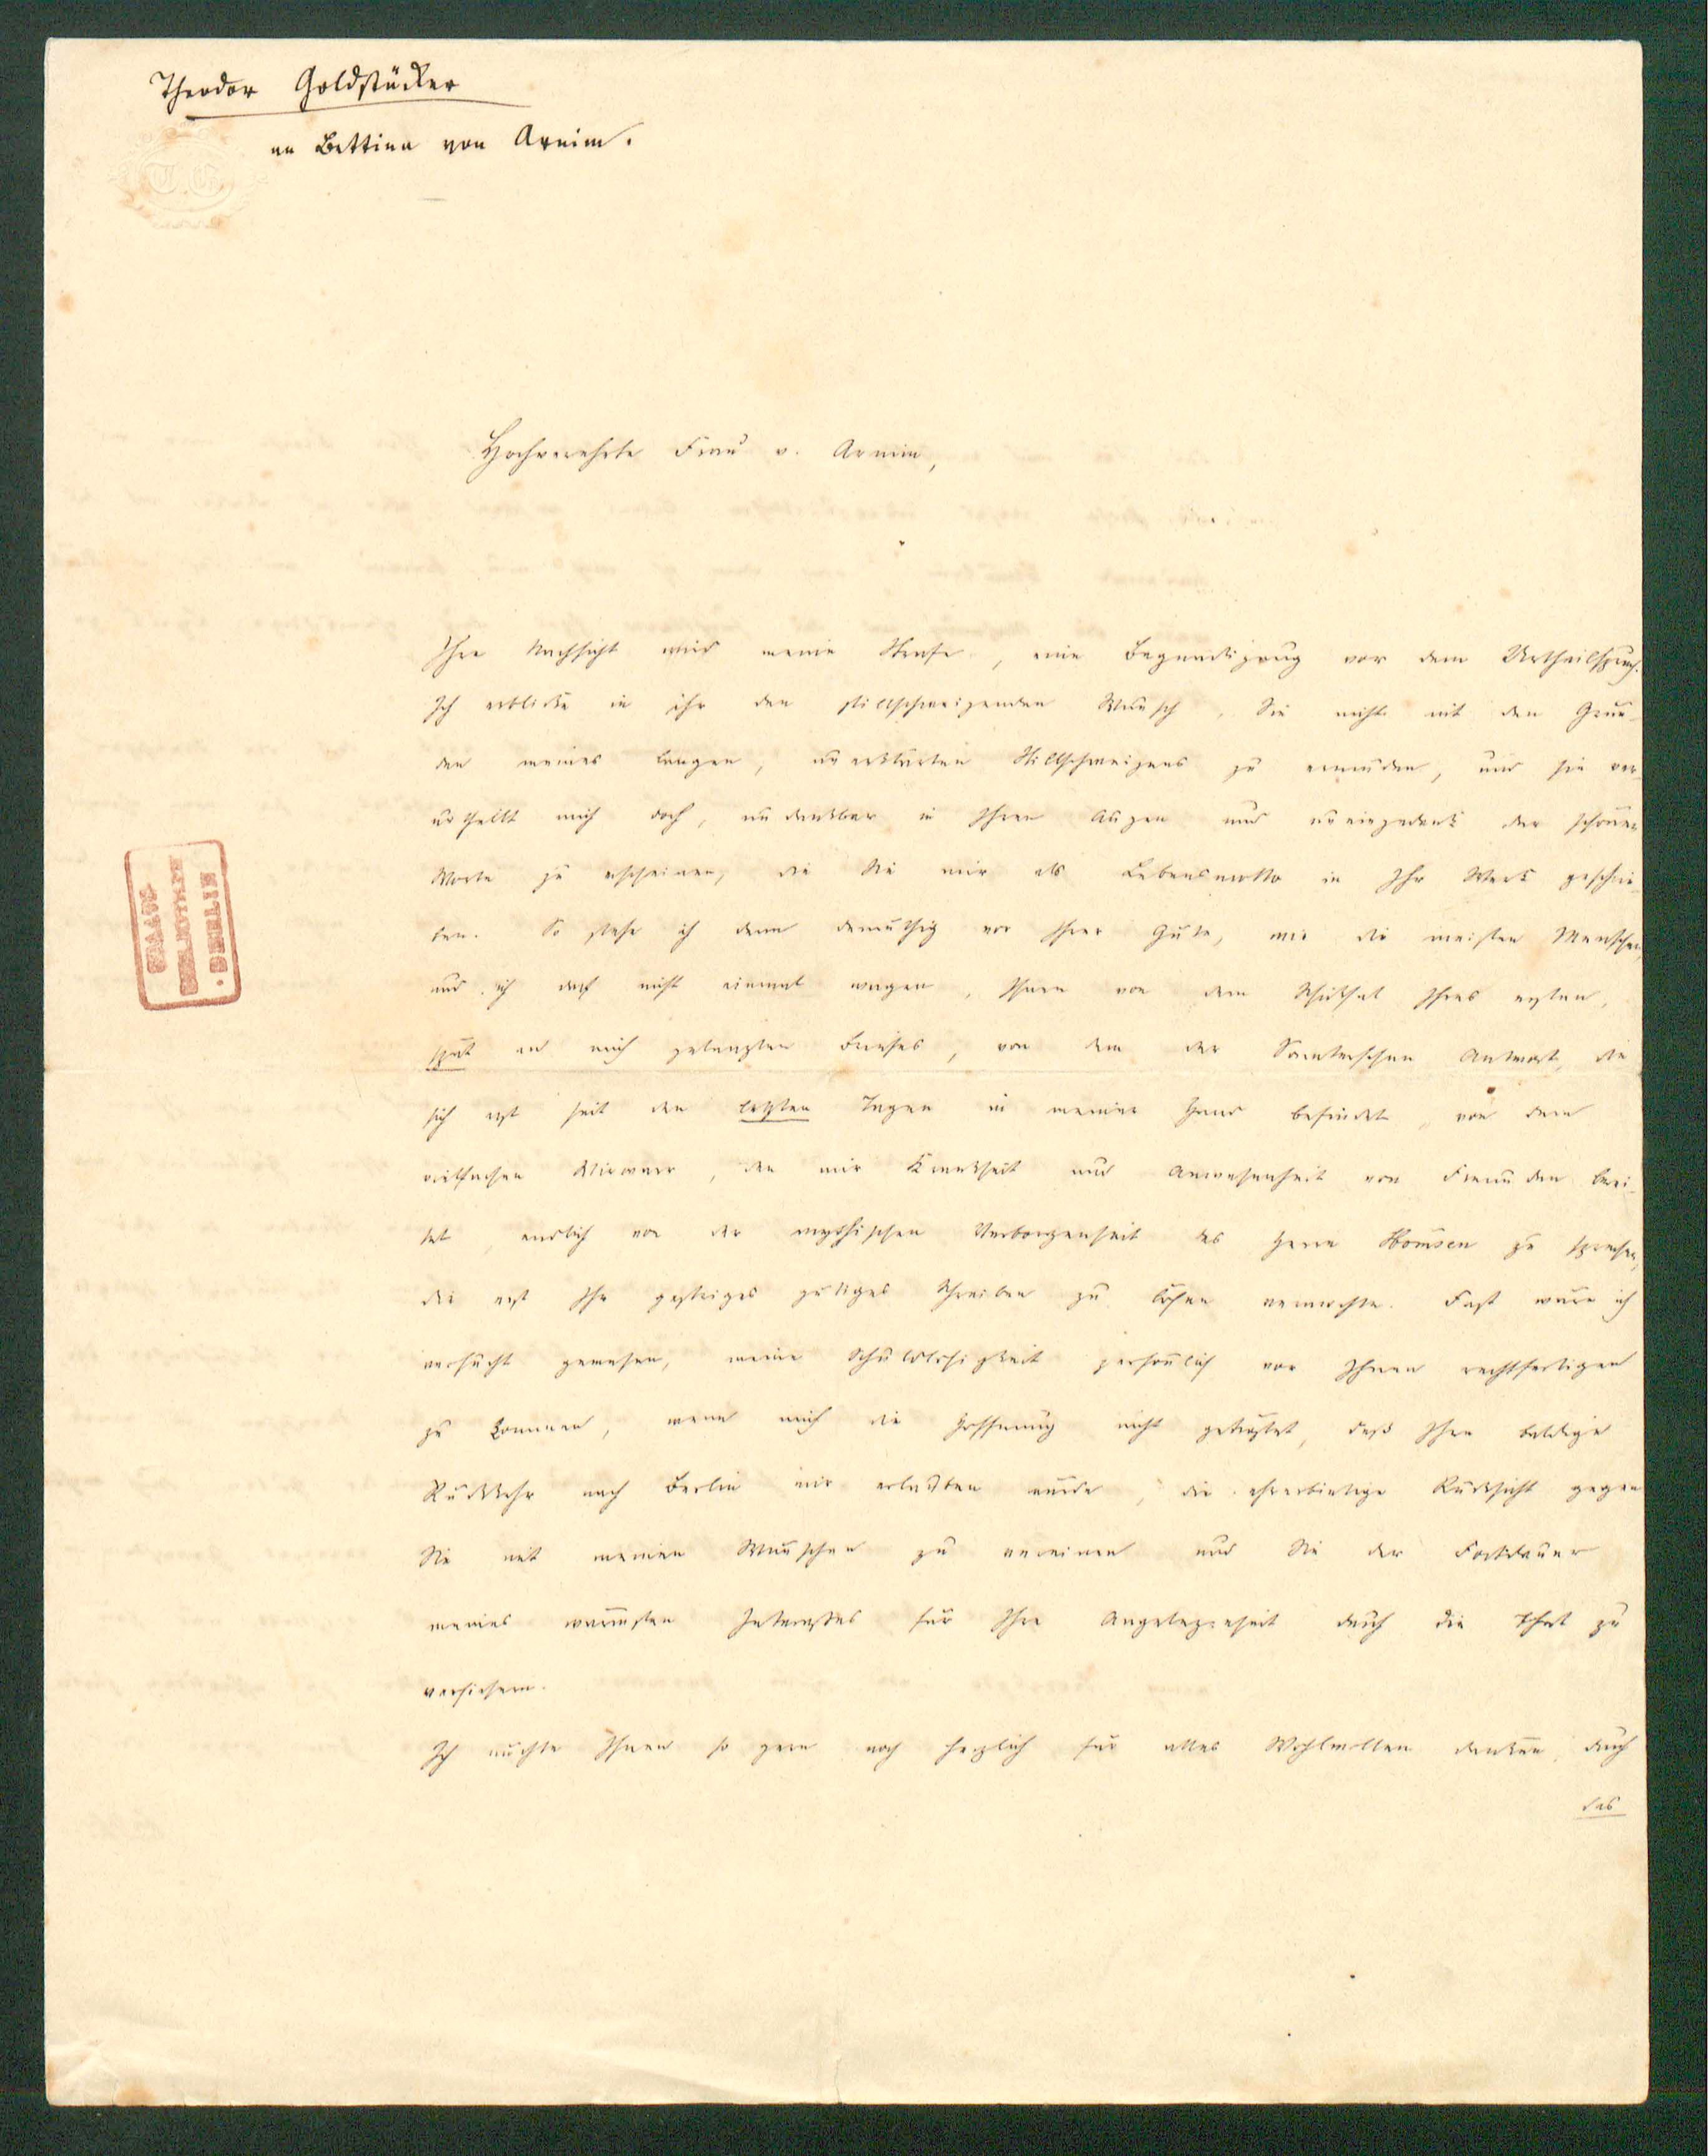 Theodor Goldstücker
an Bettina von Arnim.
T.G.
Hochverehrte Frau v. Arnim,
Ihre Nachsicht wird meine Strafe, eine Begnadigung vor dem Urtheilspruch.
Ich erblicke in ihr den stillschweigenden Wunsch, Sie nicht mit den Grün-
den meines langen, unerklärten Stillschweigens zu ermüden, und sie ver-
urtheilt mich doch, undankbar in Ihren Augen und uneingedenk der schönen
Worte zu erscheinen, die Sie mir als Lebensmotto in Ihr Werk geschrie-
ben. So stehe ich denn demüthig vor Ihrer Güte, wie die meisten Menschen,
und ich darf nicht einmal wagen, Ihnen von dem Schicksal Ihres ersten,
spät an mich gelangten Briefes, von dem der Antwort, die
sich erst seit den letzten Tagen in meiner Hand befindet, von dem
vielfachen Wirrwarr, den mir Krankheit und Anwesenheit von Freunden berei-
tet, endlich von der mythischen Verborgenheit des Herrn zu sprechen,
die erst Ihr gestriges gütiges Schreiben zu lösen vermochte. Fast wäre ich
versucht gewesen, meine Schuldlosigkeit persönlich vor Ihnen rechtfertigen
zu kommen, wenn mich die Hoffnung nicht getröstet, daß Ihre baldige
Rückkehr nach Berlin mir erlauben würde, die ehrerbietige Rücksicht gegen
Sie mit meinen Wünschen zu vereinen und Sie der Fortdauer
meines wärmsten Interesses für Ihre Angelegenheit durch die That zu
versichern.
Ich möchte Ihnen so gern noch herzlich für alles Wohlwollen danken, durch
das